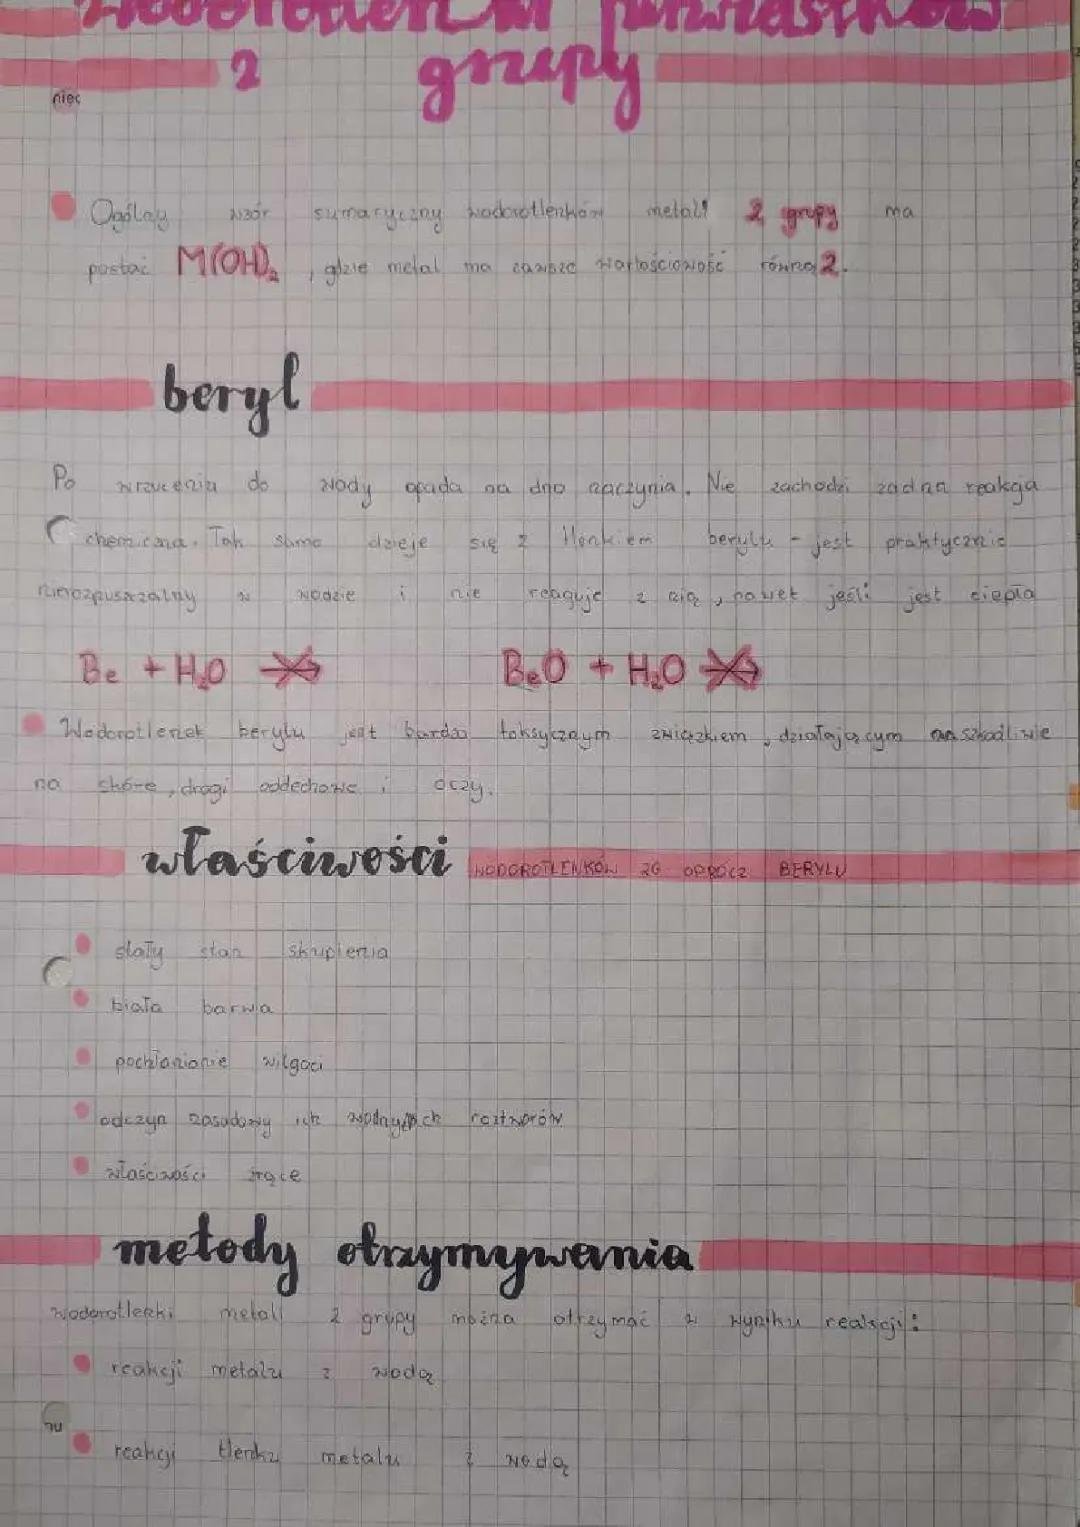 Wodorotlenki pierwiastków
2 grupy
niec
Ogólny wzór sumaryczny wodorotlenków metali 2 grupy ma
postać M(OH)₂, gdzie metal ma zawsze wartościowość równą 2.
beryl
Po wrzuceniu do wody opada na dno naczynia. Nie zachodzi żadna reakcja
chemiczna. Tak samo dzieje się z tlenkiem berylu - jest praktycznie
nierozpuszczalny w wodzie i nie reaguje z nią, nawet jeśli jest ciepła
Be + H₂O ↛ BeO + H₂O ↛
Wodorotlenek berylu jest bardzo toksycznym związkiem, działającym szkodliwie
na skórę, drogi oddechowe i oczy.
właściwości WODOROTLENKÓW 2G OPRÓCZ BERYLU
stały stan skupienia
biała barwa
pochłanianie wilgoci
odczyn zasadowy ich wodnych roztworów
właściwości żrące
metody otrzymywania
wodorotlenki metali 2 grupy można otrzymać w wyniku reakcji:
reakcji metalu z wodą
nu
reakcji tlenku metalu z wodą